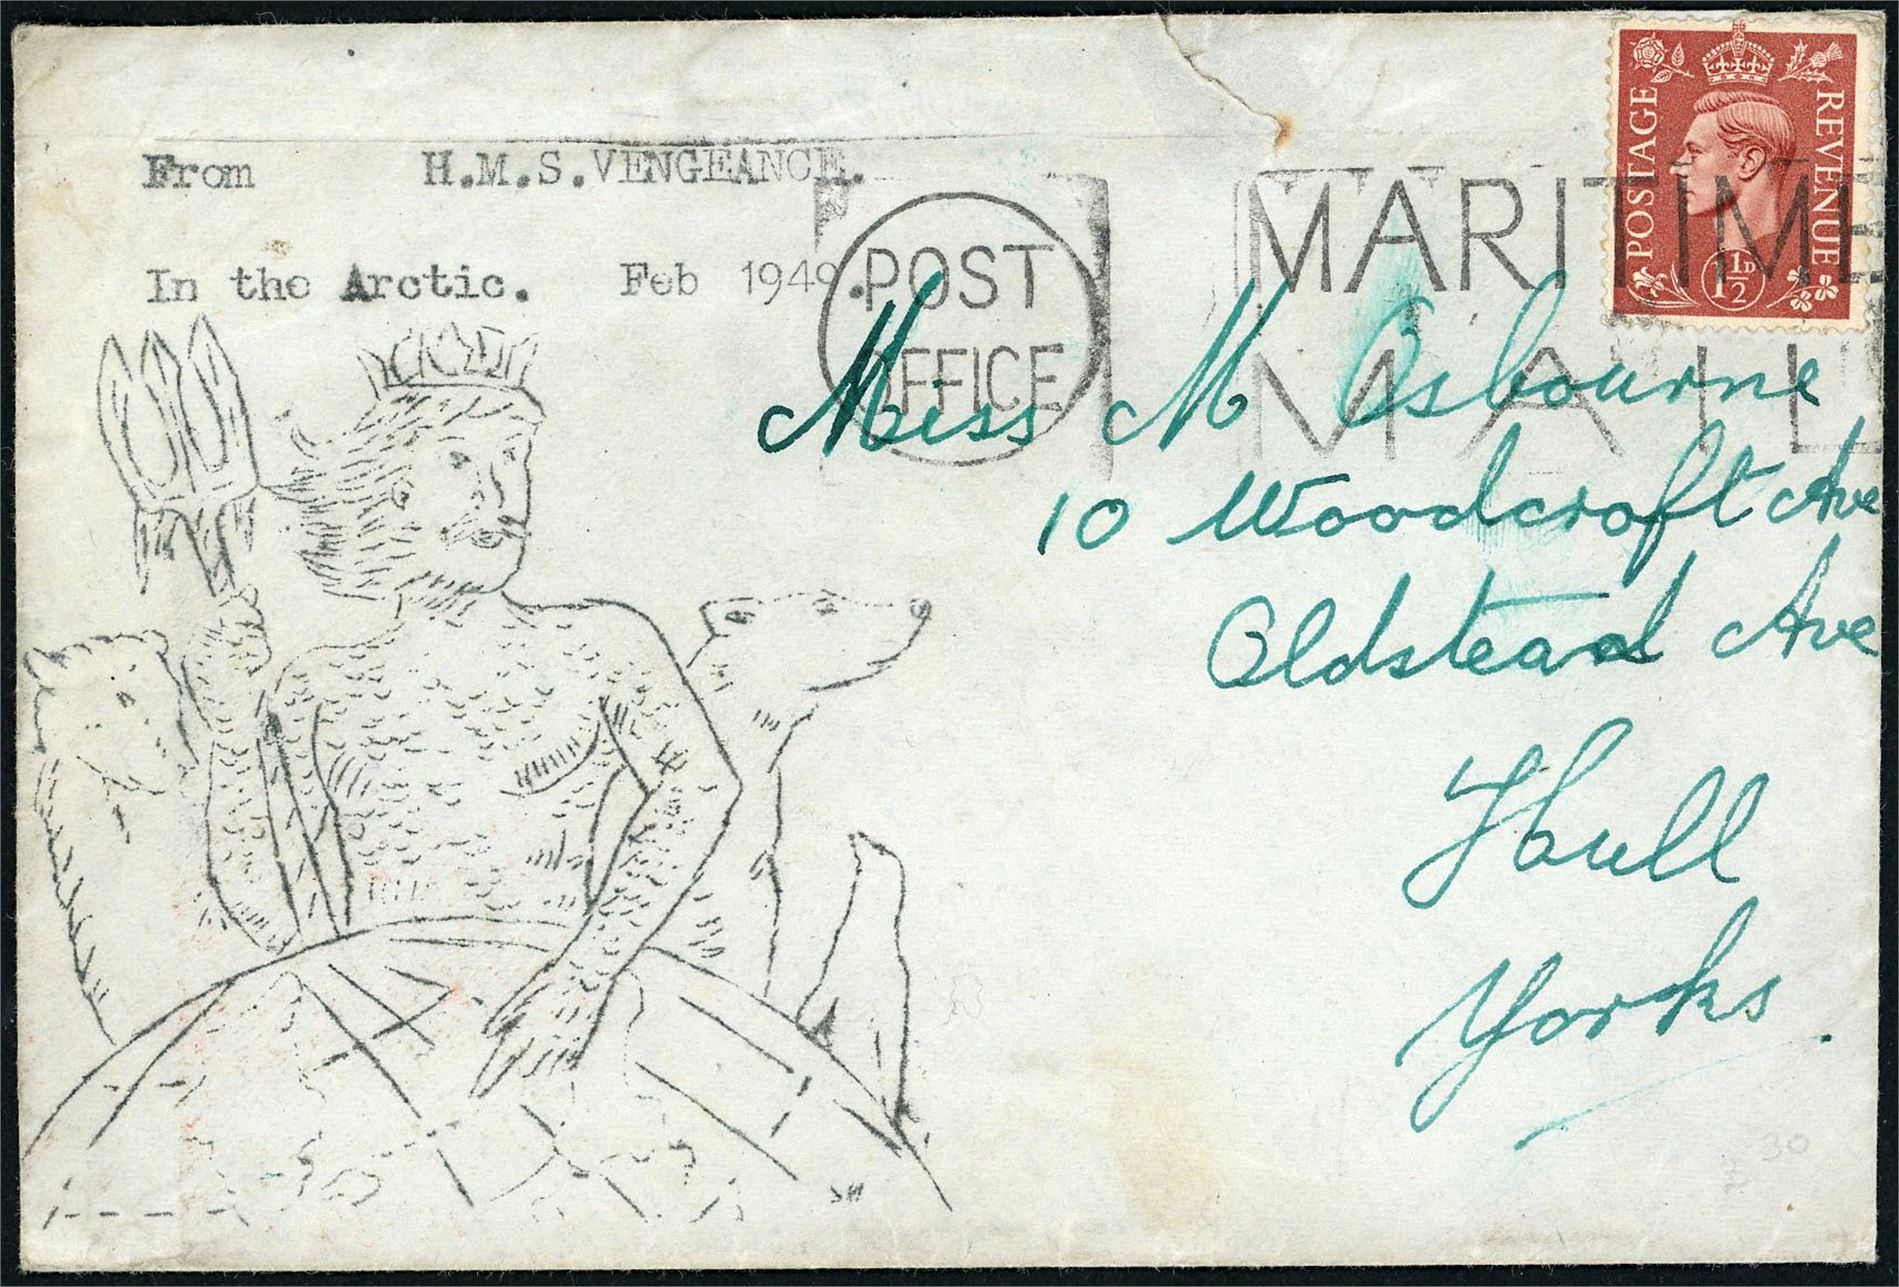 From H.M.S.VENGEANCE.
In the Arctic. Feb 1949.
POST
OFFICE
MARITIME
MAIL
POSTAGE
REVENUE
1½D
Miss M Osbourne
10 Woodcroft Ave
Oldstead Ave
Hull
Yorks.
30